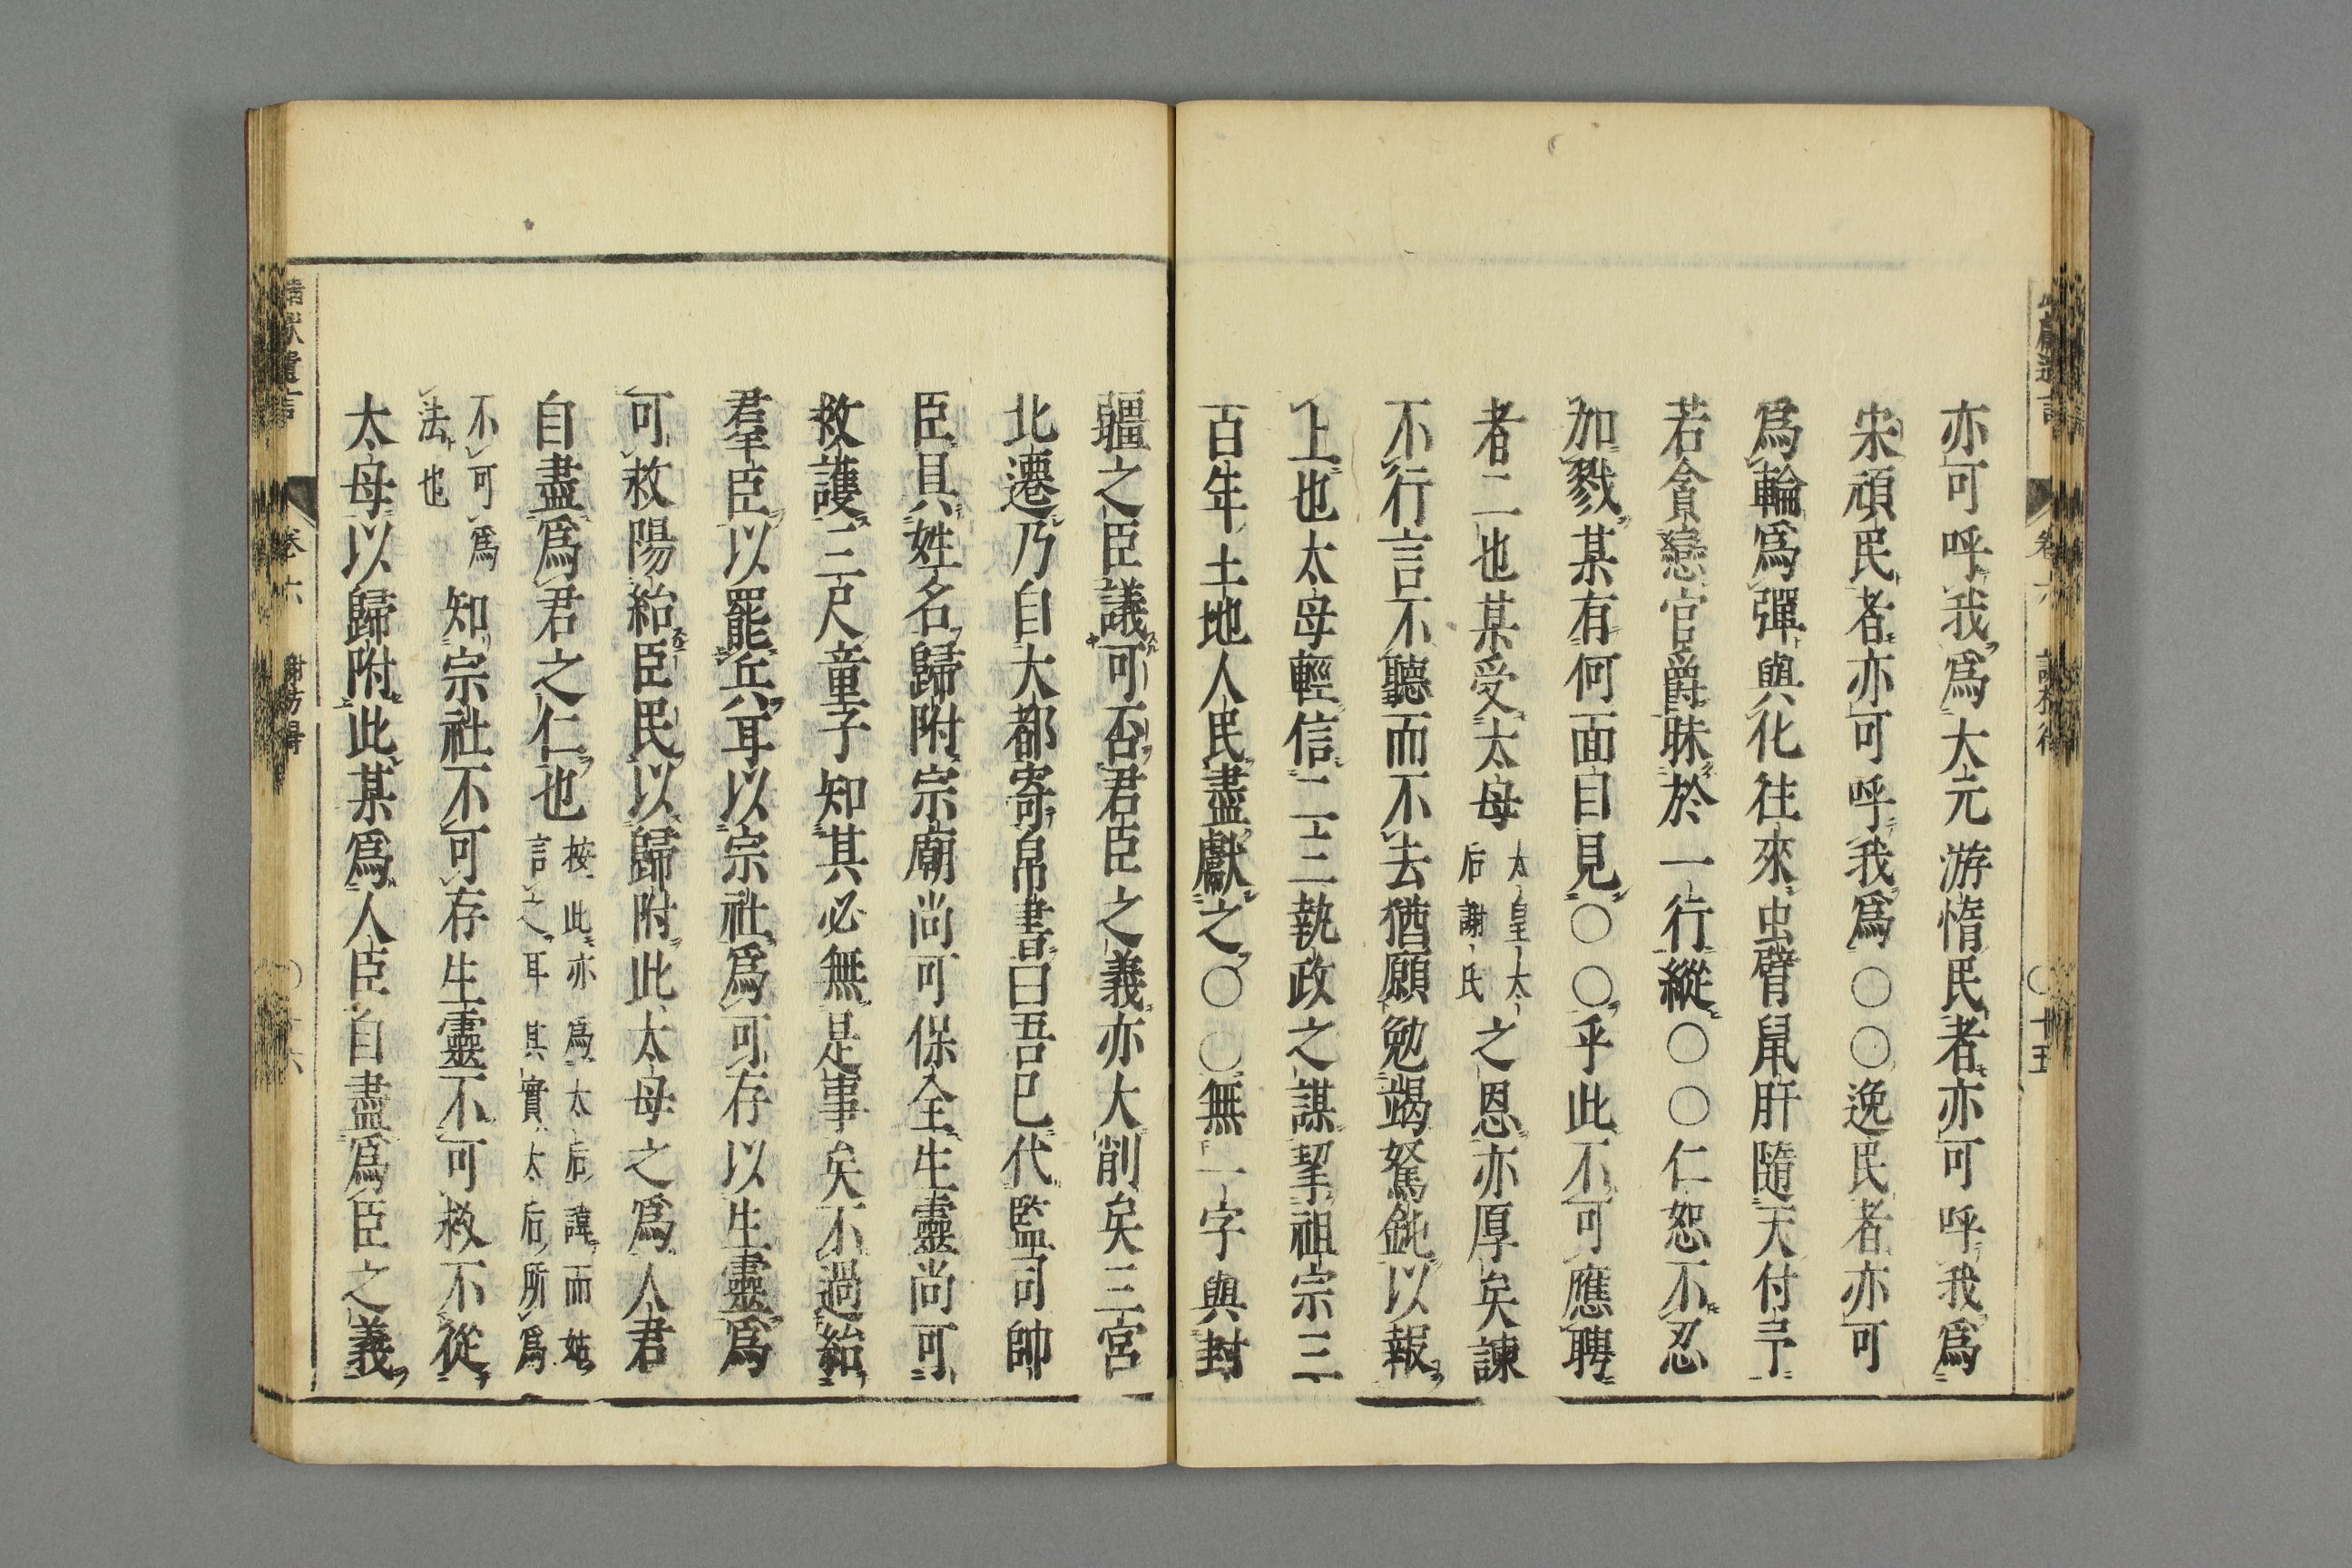 亦可呼我爲大元游惰民者亦可呼我爲
宋頑民者亦可呼我爲○○逸民者亦可
爲輪爲彈與化往來虫臂鼠肝隨天付予
若貪戀官爵昧於一行縱○○仁恕不忍
加戮某有何面目見○○乎此不可應聘
者二也某受太母
太皇太
后謝氏
之恩亦厚矣諫
不行言不聽而不去猶願勉竭駑鈍以報
上也太母輕信二三執政之謀挈祖宗三
百年土地人民盡獻之○○無一字與封
疆之臣議可否君臣之義亦大削矣三宮
北遷乃自大都寄帛書曰吾已代監司帥
臣具姓名歸附宗廟尚可保全生靈尚可
救護三尺童子知其必無是事矣不過紿
羣臣以罷兵耳以宗社爲可存以生靈爲
可救陽紿臣民以歸附此太母之爲人君
自盡爲君之仁也
按此亦爲太后諱而姑
言之耳其實太后所爲
不可爲
法也
知宗社不可存生靈不可救不從
太母以歸附此某爲人臣自盡爲臣之義
卷六
謝枋得
十五
靖獻遺言
卷六
謝枋得